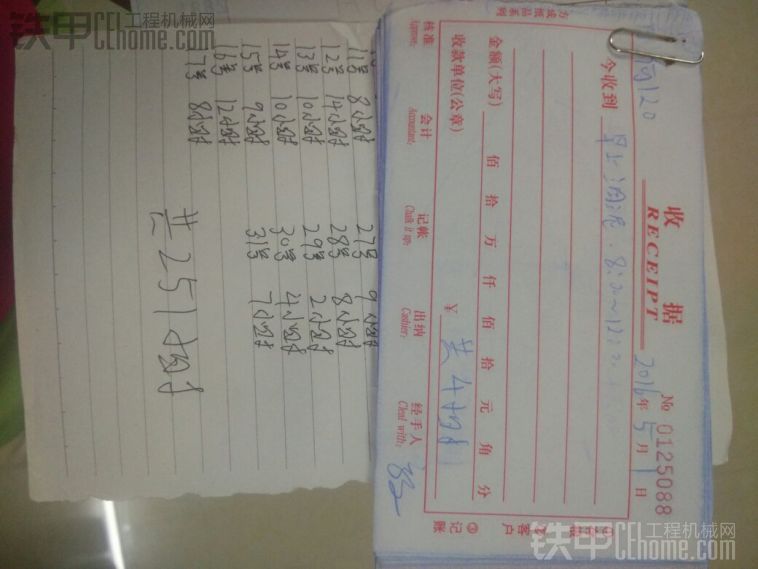 铁甲 工程机械网
CEhome.com
11号 8小时 27号 9小时
12号 14小时 28号 8小时
13号 10小时 29号 2小时
14号 10小时 30号 4小时
15号 9小时 31号 7小时
16号 12小时
17号 8小时
共251小时
方成纸品系列
收 据
RECEIPT
No 0125088
2016年5月1日
今收到
共4小时
金额(大写) 佰 拾 万 仟 佰 拾 元 角 分
¥
收款单位(公章)
核准 会计 记帐 出纳 经手人
Approve: Accountant: Chalk it up: Cashier: Deal with:
②客户
③记账
铁甲 工程机械网
CEhome.com